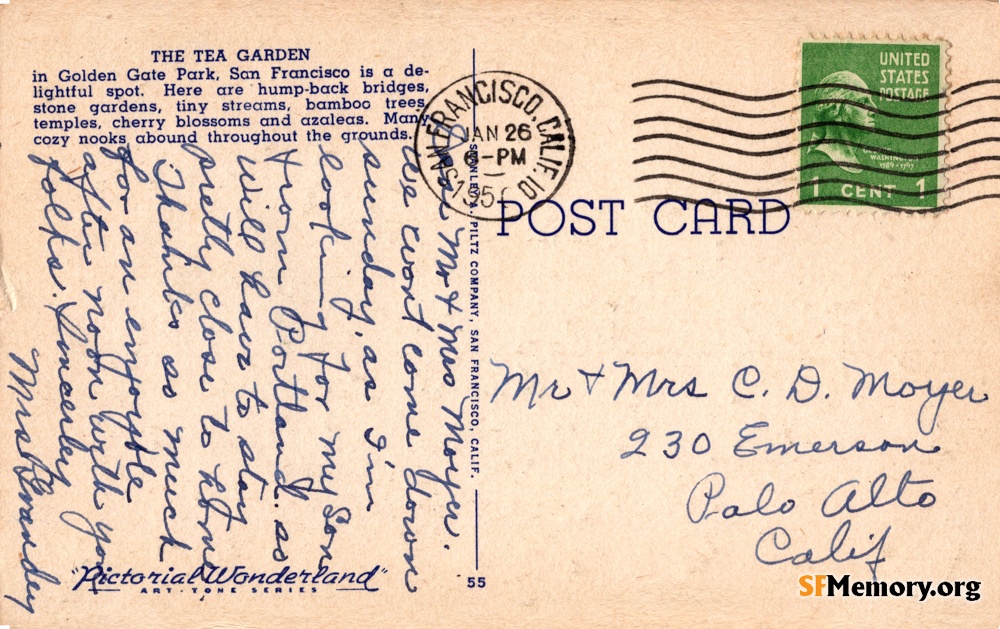 THE TEA GARDEN
in Golden Gate Park, San Francisco is a de-
lightful spot. Here are hump-back bridges,
stone gardens, tiny streams, bamboo trees,
temples, cherry blossoms and azaleas. Many
cozy nooks abound throughout the grounds.
Dear Mr & Mrs Moyer.
We wont come down
sunday, as I'm
looking for my Son
from Portland. as
will have to stay
pretty close to home
Thanks so much
for an enjoyable
after noon with you
folks. Sincerley
Mrs
"Pictorial Wonderland"
ART-TONE SERIES
55
STANLEY A. PILTZ COMPANY, SAN FRANCISCO, CALIF.
SAN FRANCISCO, CALIF. 10
JAN 26
6-PM
195
UNITED
STATES
POSTAGE
WASHINGTON
1789-1797
1 CENT 1
POST CARD
Mr & Mrs C. D. Moyer
230 Emerson
Palo Alto
Calif
SFMemory.org